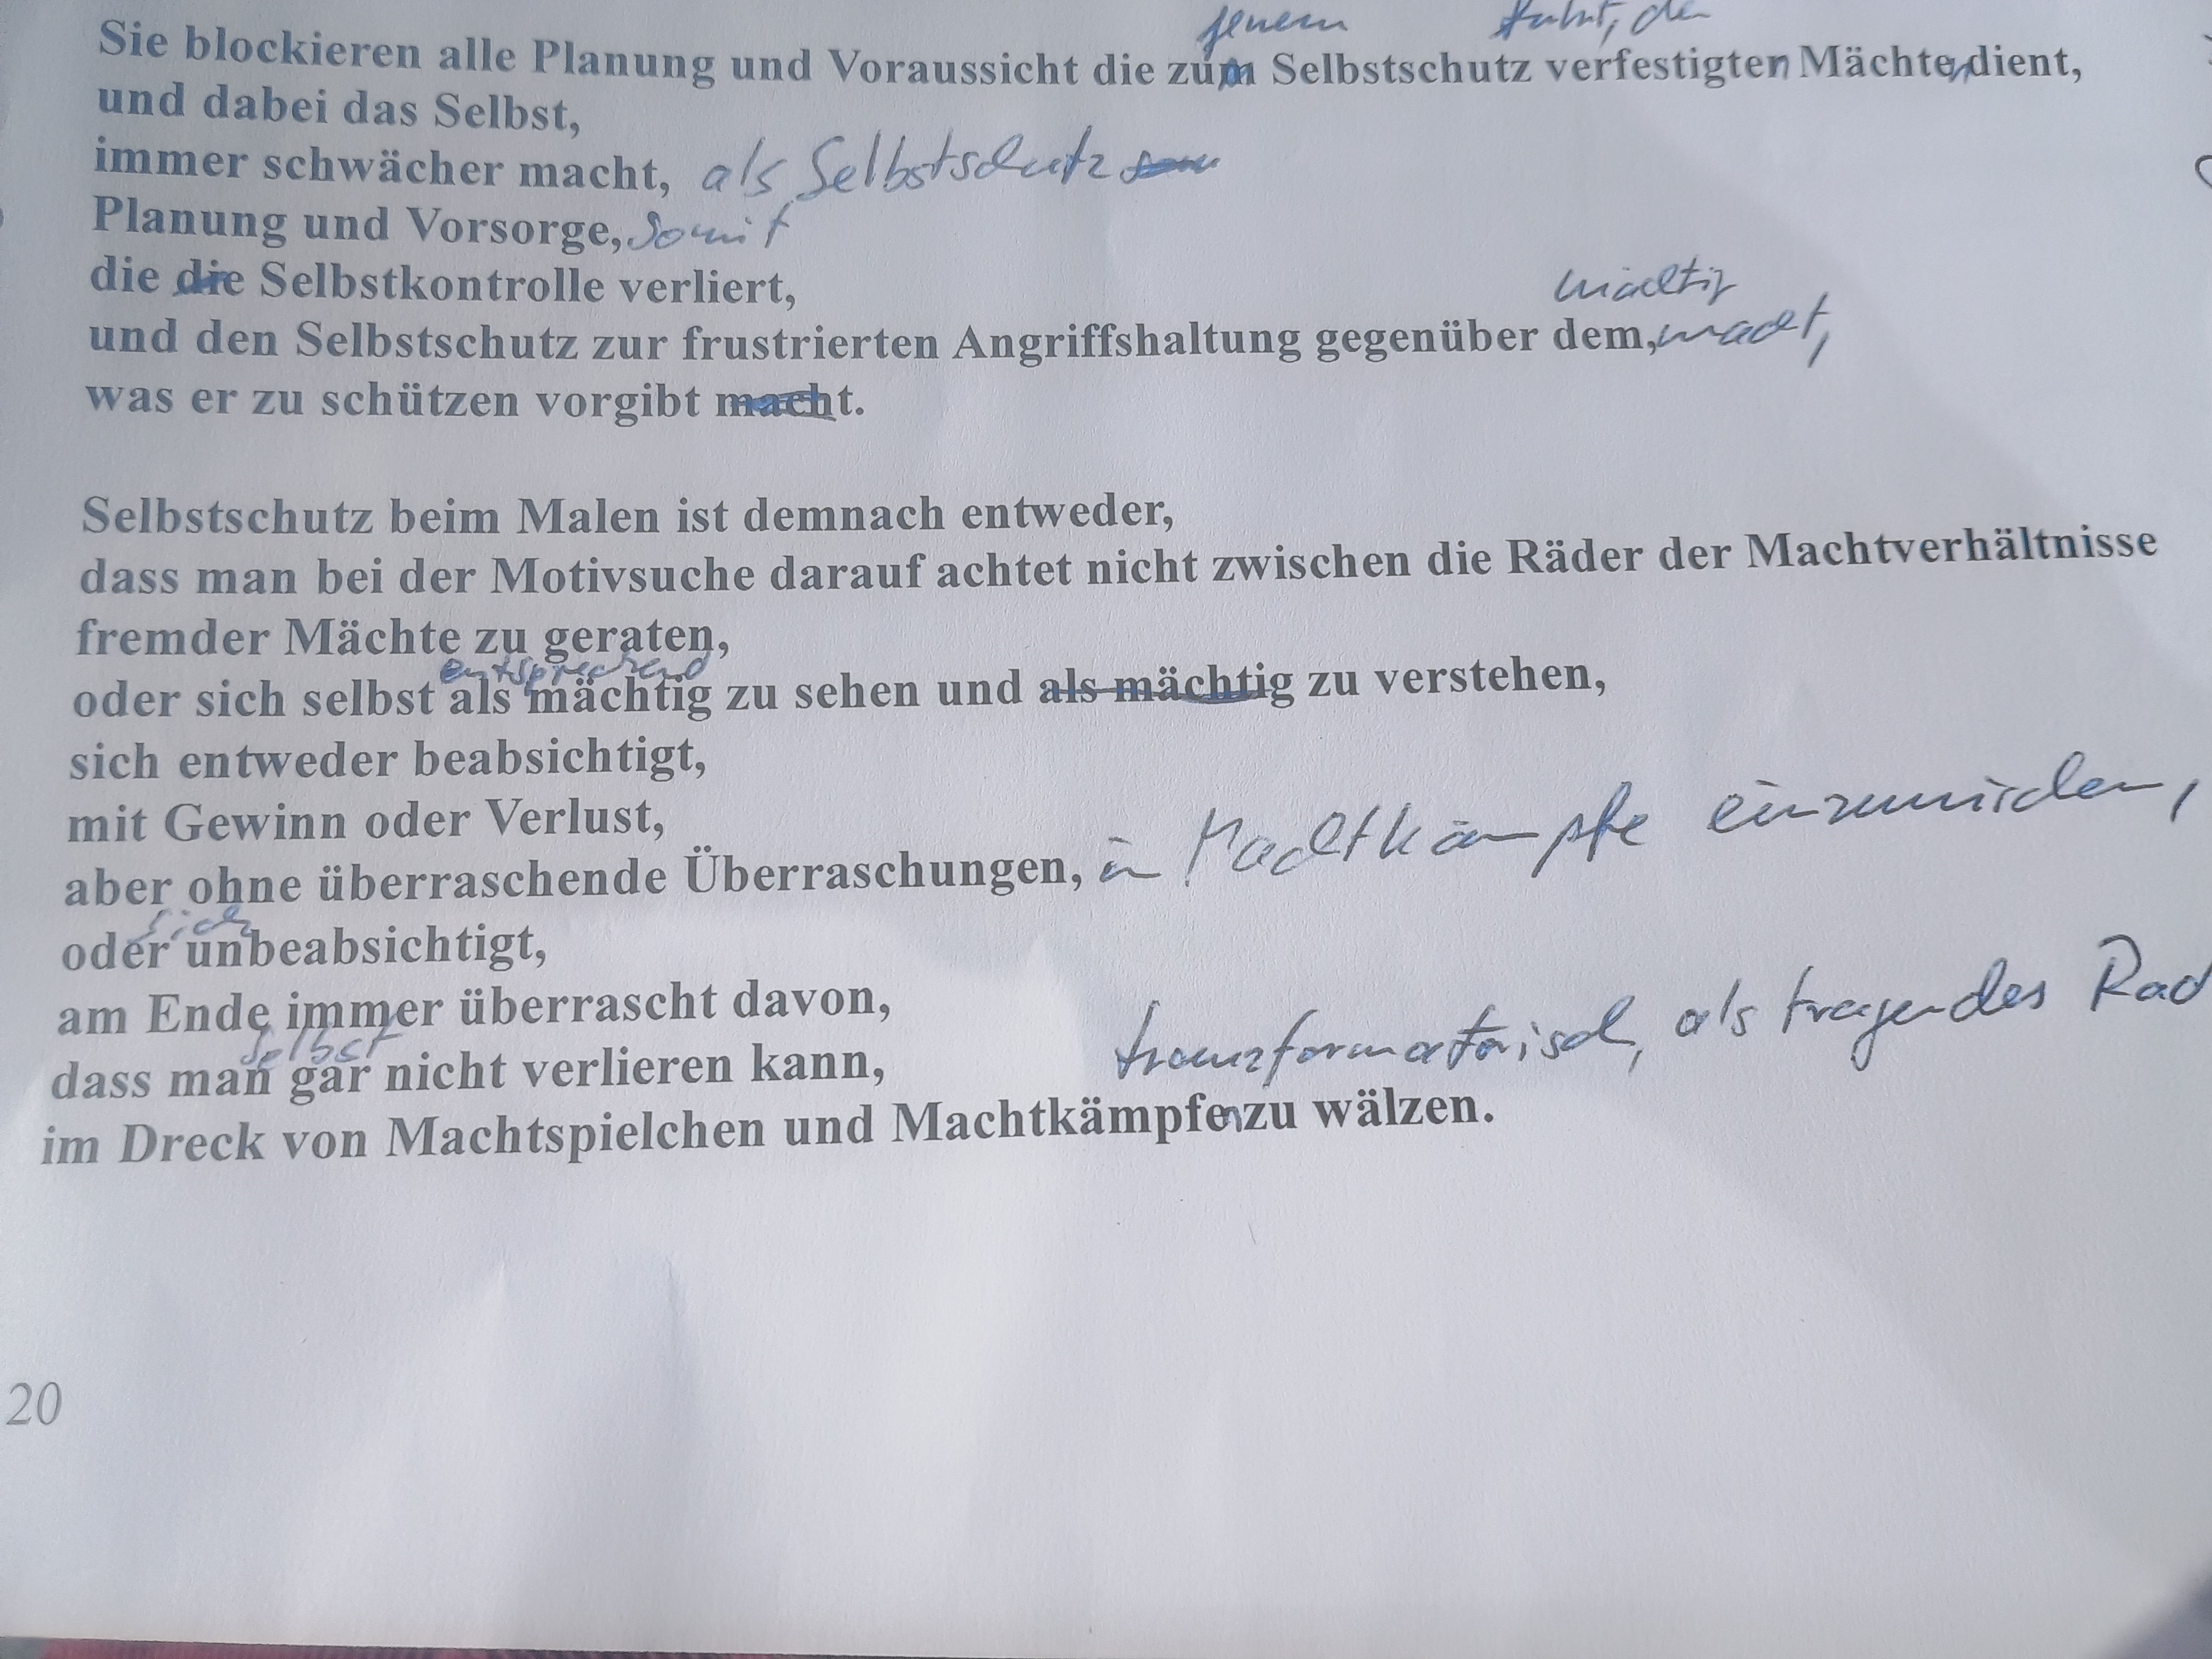 jenem führt, der
Sie blockieren alle Planung und Voraussicht die zum Selbstschutz verfestigten Mächten dient,
und dabei das Selbst,
immer schwächer macht, als Selbstschutz
Planung und Vorsorge, somit
die die Selbstkontrolle verliert,
mächtig
und den Selbstschutz zur frustrierten Angriffshaltung gegenüber dem, macht,
was er zu schützen vorgibt macht.
Selbstschutz beim Malen ist demnach entweder,
dass man bei der Motivsuche darauf achtet nicht zwischen die Räder der Machtverhältnisse
fremder Mächte zu geraten,
entsprechend
oder sich selbst als mächtig zu sehen und als mächtig zu verstehen,
sich entweder beabsichtigt,
mit Gewinn oder Verlust,
aber ohne überraschende Überraschungen, in Machtkämpfe einzumischen,
sich
oder unbeabsichtigt,
am Ende immer überrascht davon,
selbst
dass man gar nicht verlieren kann, transformatorisch, als tragendes Rad
im Dreck von Machtspielchen und Machtkämpfen zu wälzen.
20